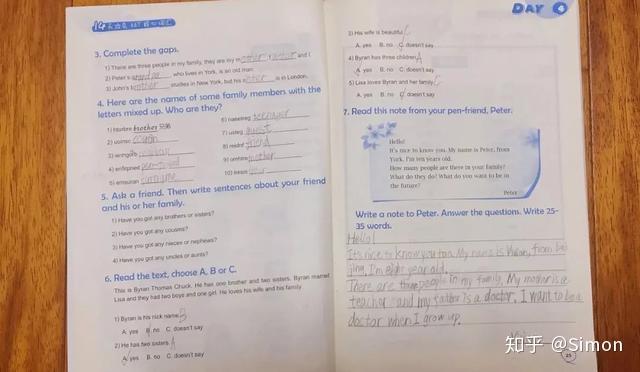 3. Complete the gaps.
1) There are three people in my family, they are my mother, father and I.
2) Peter's grandpa, who lives in York, is an old man.
3) John's brother studies in New York, but his sister is in London.
4. Here are the names of some family members with the
letters mixed up. Who are they?
1) btsrleor brother
2) cousin
4) pen-friend
5) surname
6) teenager
7) guest
8) friend
9) mother
5. Ask a friend. Then write sentences about your friend
and his or her family.
1) Have you got any brothers or sisters?
2) Have you got any cousins?
3) Have you got any nieces or nephews?
4) Have you got any uncles or aunts?
6. Read the text, choose A, B or C.
This is Byran Thomas Chuck. He has one brother and two sisters. Byran married
Lisa and they had two boys and one girl. He loves his wife and his family.
1) Byran is his nick name. B
A. yes B. no C. doesn't say
2) He has two sisters. A
A. yes B. no C. doesn't say
DAY 4
3) His wife is beautiful. C
A. yes B. no C. doesn't say
4) Byran has three children. A
A. yes B. no C. doesn't say
5) Lisa loves Byran and her family. C
A. yes B. no C. doesn't say
7. Read this note from your pen-friend, Peter.
Hello!
It's nice to know you. My name is Peter, from
York. I'm ten years old.
How many people are there in your family?
What do they do? What do you want to be in
the future?
Peter
Write a note to Peter. Answer the questions. Write 25-
35 words.
Hello!
It's nice to know you too. My name is from Bei
jing. I'm eight year old.
There are three people in my family. My mother is a
teacher and my father is a doctor. I want to be a
doctor when I grow up.
25
知乎 @Simon